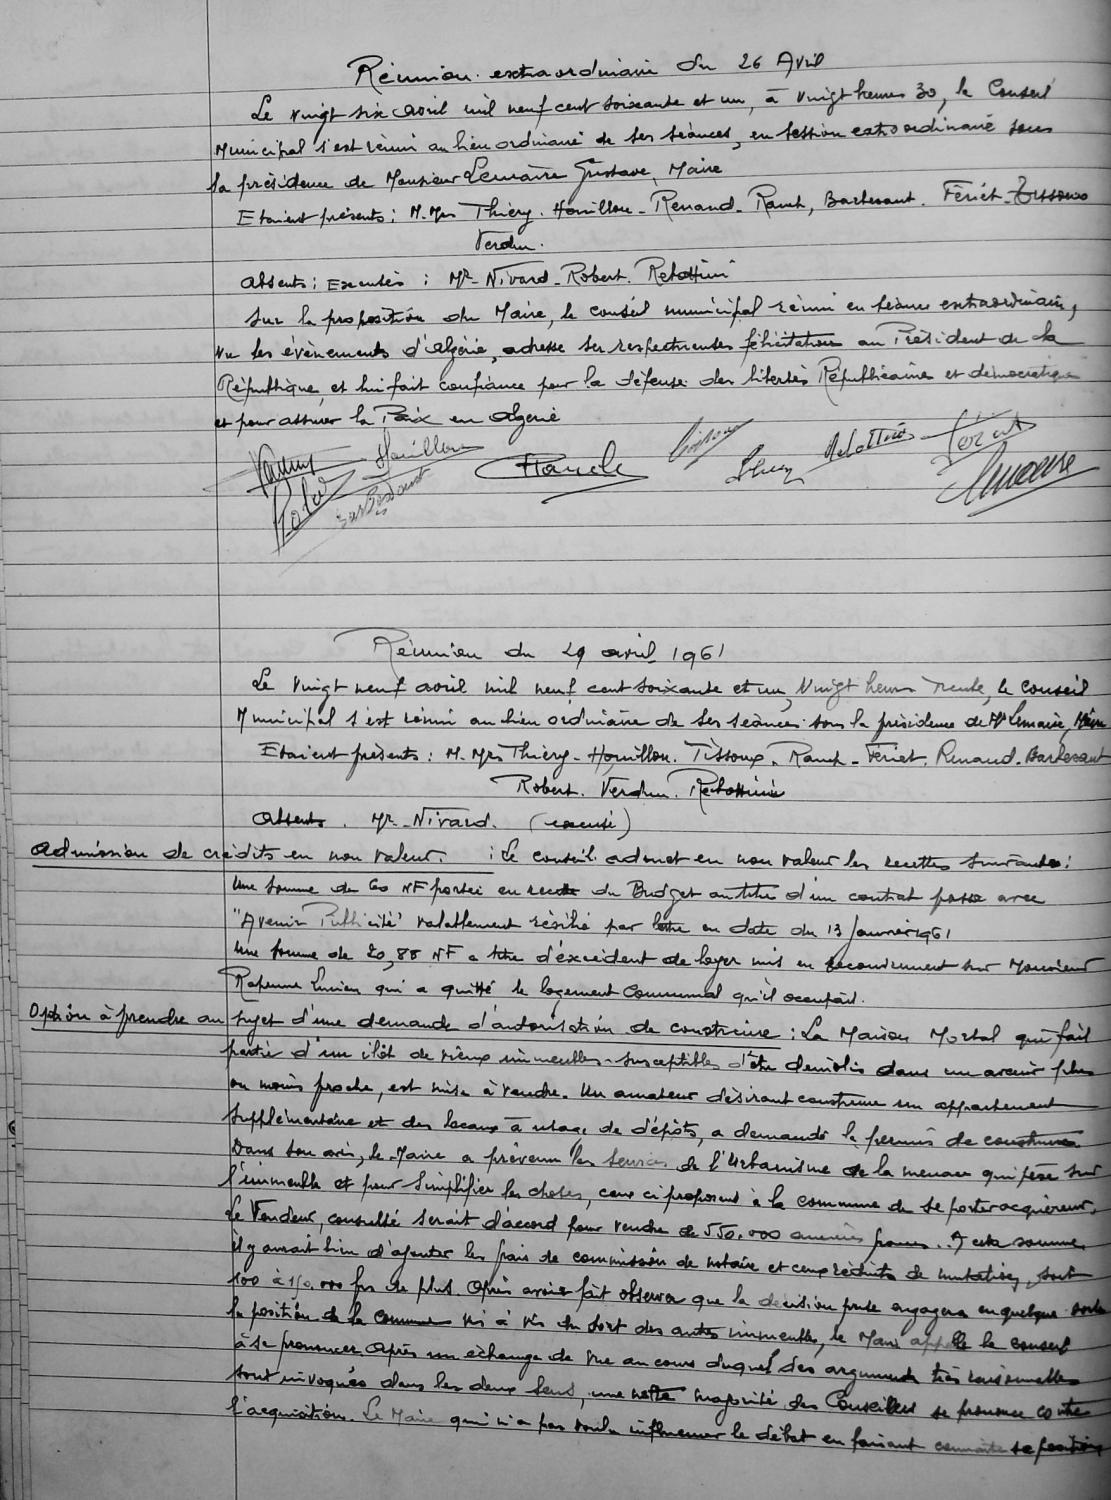 Réunion extraordinaire du 26 Avril
Le vingt six avril mil neuf cent soixante et un, à vingt heures 30, le Conseil
Municipal s'est réuni au lieu ordinaire de ses séances, en session extraordinaire sous
la présidence de Monsieur Lemaire Gustave, Maire
Etaient présents : M. Mrs Thiéry. Houillon. Renaud. Rauch, Barbesant. Fériet. Tissoux
Verdun.
Absents : Excusés : Mr. Nivard. Robert. Relottini
Sur la proposition du Maire, le conseil municipal réuni en séance extraordinaire,
vu les évènements d'Algérie, adresse ses respectueuses félicitations au Président de la
République, et lui fait confiance pour la défense des libertés Républicaines et démocratiques
et pour assurer la Paix en Algérie
Houillon
Rauch
Lemaire
Réunion du 29 avril 1961
Le vingt neuf avril mil neuf cent soixante et un, vingt heures trente, le conseil
Municipal s'est réuni au lieu ordinaire de ses séances sous la présidence de Mr Lemaire, Maire
Etaient présents : M. Mrs Thiéry. Houillon. Tissoux. Rauch. Fériet. Renaud. Barbesant
Robert. Verdun. Relottini
Absents. Mr. Nivard. (excusé)
Admission de crédits en non valeur. : Le conseil admet en non valeur les recettes suivantes :
Une somme de 60 NF portée en recette du Budget au titre d'un contrat passé avec
"Avenir Publicité" valablement résilié par lettre en date du 13 Janvier 1961
Une somme de 20,88 NF à titre d'excédent de loyer mis en recouvrement sur Monsieur
Lucien qui a quitté le logement Communal qu'il occupait.
Option à prendre au sujet d'une demande d'autorisation de construire : La Maison Mortal qui fait
partie d'un ilôt de vieux immeubles susceptibles d'être démolis dans un avenir plus
ou moins proche, est mise à vendre. Un amateur désirant construire un appartement
supplémentaire et des locaux à usage de dépôts, a demandé le permis de construire
Dans son avis, le Maire a prévenu les services de l'Urbanisme de la menace qui pèse sur
l'immeuble et pour simplifier les choses, ceux ci proposent à la commune de se porter acquéreur.
Le Vendeur, consulté serait d'accord pour vendre de 550.000 anciens francs. A cette somme,
il y aurait lieu d'ajouter les frais de commission de notaire et ceux réduits de mutation, soit
100 à 150.000 frs de plus. Après avoir fait observer que la décision prise engagera en quelque sorte
la position de la commune vis à vis du sort des autres immeubles, le Maire appelle le conseil
à se prononcer. Après un échange de vue au cours duquel des arguments très raisonnables
sont invoqués dans les deux sens, une nette majorité des Conseillers se prononce contre
l'acquisition. Le Maire qui n'a pas voulu influencer le débat en faisant connaître sa position